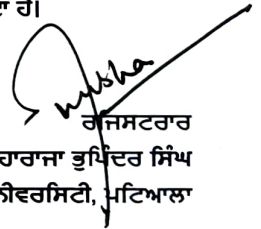 ਹੈ।
ਰਜਿਸਟਰਾਰ
ਹਾਰਾਜਾ ਭੁਪਿੰਦਰ ਸਿੰਘ
ਨੀਵਰਸਿਟੀ, ਪਟਿਆਲਾ